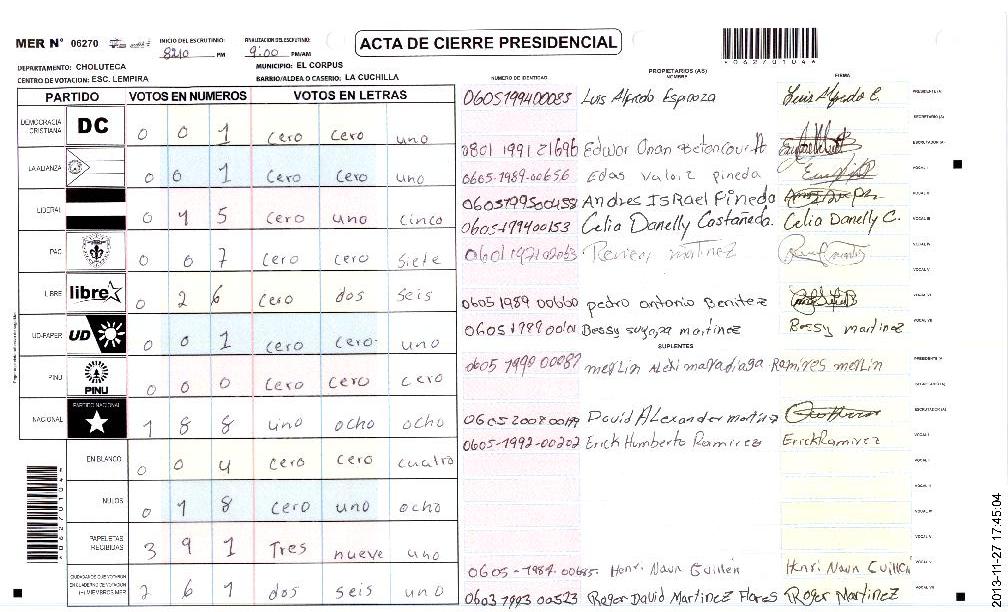 MER N° 06270
INICIO DEL ESCRUTINIO: 8210 PM
FINALIZACION DEL ESCRUTINIO: 9:00 PM/AM
ACTA DE CIERRE PRESIDENCIAL
*06270104*
DEPARTAMENTO: CHOLUTECA
MUNICIPIO: EL CORPUS
CENTRO DE VOTACION: ESC. LEMPIRA
BARRIO/ALDEA O CASERIO: LA CUCHILLA
PARTIDO VOTOS EN NUMEROS VOTOS EN LETRAS
DEMOCRACIA CRISTIANA DC 0 0 1 cero cero uno
LA ALIANZA 0 0 1 cero cero uno
LIBERAL 0 1 5 cero uno cinco
PAC 0 0 7 cero cero siete
LIBRE libre 0 2 6 cero dos seis
UD-FAPER UD 0 0 1 cero cero uno
PINU PINU 0 0 0 cero cero cero
NACIONAL PARTIDO NACIONAL 1 8 8 uno ocho ocho
EN BLANCO 0 0 4 cero cero cuatro
NULOS 0 1 8 cero uno ocho
PAPELETAS RECIBIDAS 3 9 1 Tres nueve uno
CIUDADANOS QUE VOTARON EN CUADERNO DE VOTACION (+) MIEMBROS MER 2 6 1 dos seis uno
*06270104*
NUMERO DE IDENTIDAD PROPIETARIOS (AS) NOMBRE FIRMA
0605199400085 Luis Alfredo Espinoza Luis Alfredo E. PRESIDENTE (A)
SECRETARIO (A)
0801 1991 21696 Edwar Onan Betancourth ESCRUTADOR (A)
0605-1989-00656 Edas Valoiz pineda VOCAL I
0605199500458 Andres ISRael Pinedo VOCAL II
0605-199400153 Celia Danelly Castañeda. Celia Danelly C. VOCAL III
martinez VOCAL IV
VOCAL V
0605 1989 00660 pedro antonio Benitez VOCAL VI
Bessy martinez Bessy martinez VOCAL VII
SUPLENTES
merLin Ramires merLin PRESIDENTE (A)
SECRETARIO (A)
David ALexander martinez ESCRUTADOR (A)
0605-1992-00202 Erick Humberto Ramirez Erick Ramirez VOCAL I
VOCAL II
VOCAL III
VOCAL IV
VOCAL V
Henri Naun Guillén Henri Naun Guillén VOCAL VI
0603 1993 00523 Roger David Martinez Flores Roger Martinez VOCAL VII
2013-11-27 17:45:04